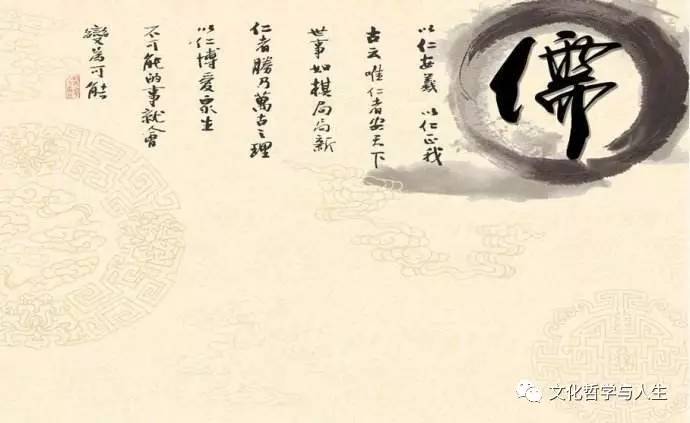 儒
以仁安義 以仁正我
古云唯仁者安天下
世事如棋局局新
仁者勝乃萬古之理
以仁博愛眾生
不可能的事就會
變為可能
文化哲学与人生